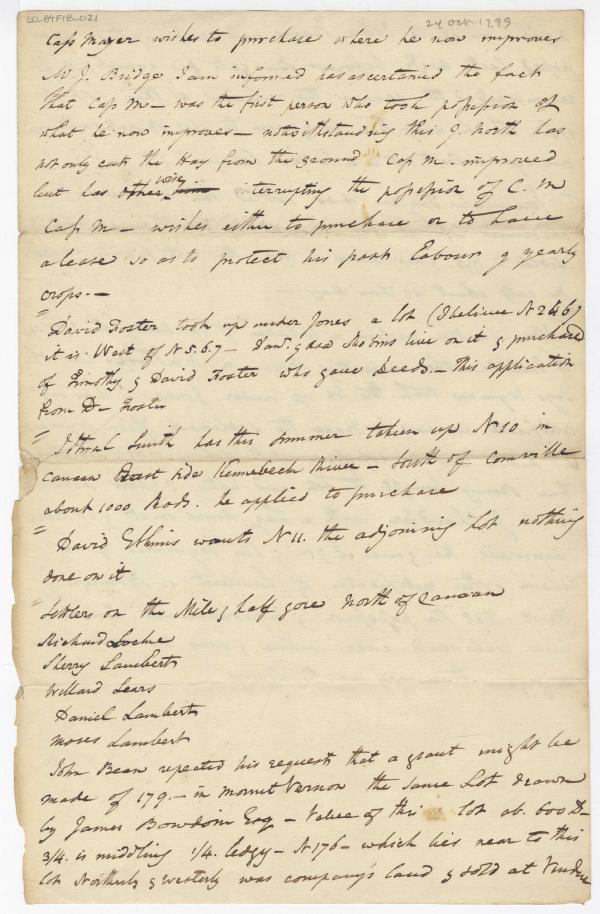 LQ.B4F18_021
24 Oct 1799
Capt Mayer wishes to purchase where he now improves
Mr. J. Bridge I am informed has ascertained the fact
that Capt M— was the first person who took possession of
what he now improves— notwithstanding this J. North has
not only cut the Hay from the ground Capt M. improved
but has other wise interrupting the possession of C. M
Capt M— wishes either to purchase or to have
a lease so as to protect his past Labours & yearly
crops.—
David Foster took up under Jones a lot (I believe N 246)
it is West of N 5.6.7— & Asa Robins live on it & purchased
of Timothy & David Foster who gave Deeds.— This application
from D— Foster
Smith has this summer taken up N 10 in
Canaan East side Kennebeck River — South of Cornville
about 1000 Rods. he applied to purchase
David wants N 11. the adjoining lot nothing
done on it
Settlers on the Mile & half gore North of Canaan
Richard Locke
Sherry Lambert
Willard Sears
Daniel Lambert
Moses Lambert
John Bean repeated his request that a grant might be
made of 179.— in Mount Vernon the same Lot drawn
by James Bowdoin Esq — Value of this lot ab. 600 D—
3/4. is middling 1/4. ledgy — N 176 — which lies near to this
lot Northerly & westerly was company's land & sold at Vendue